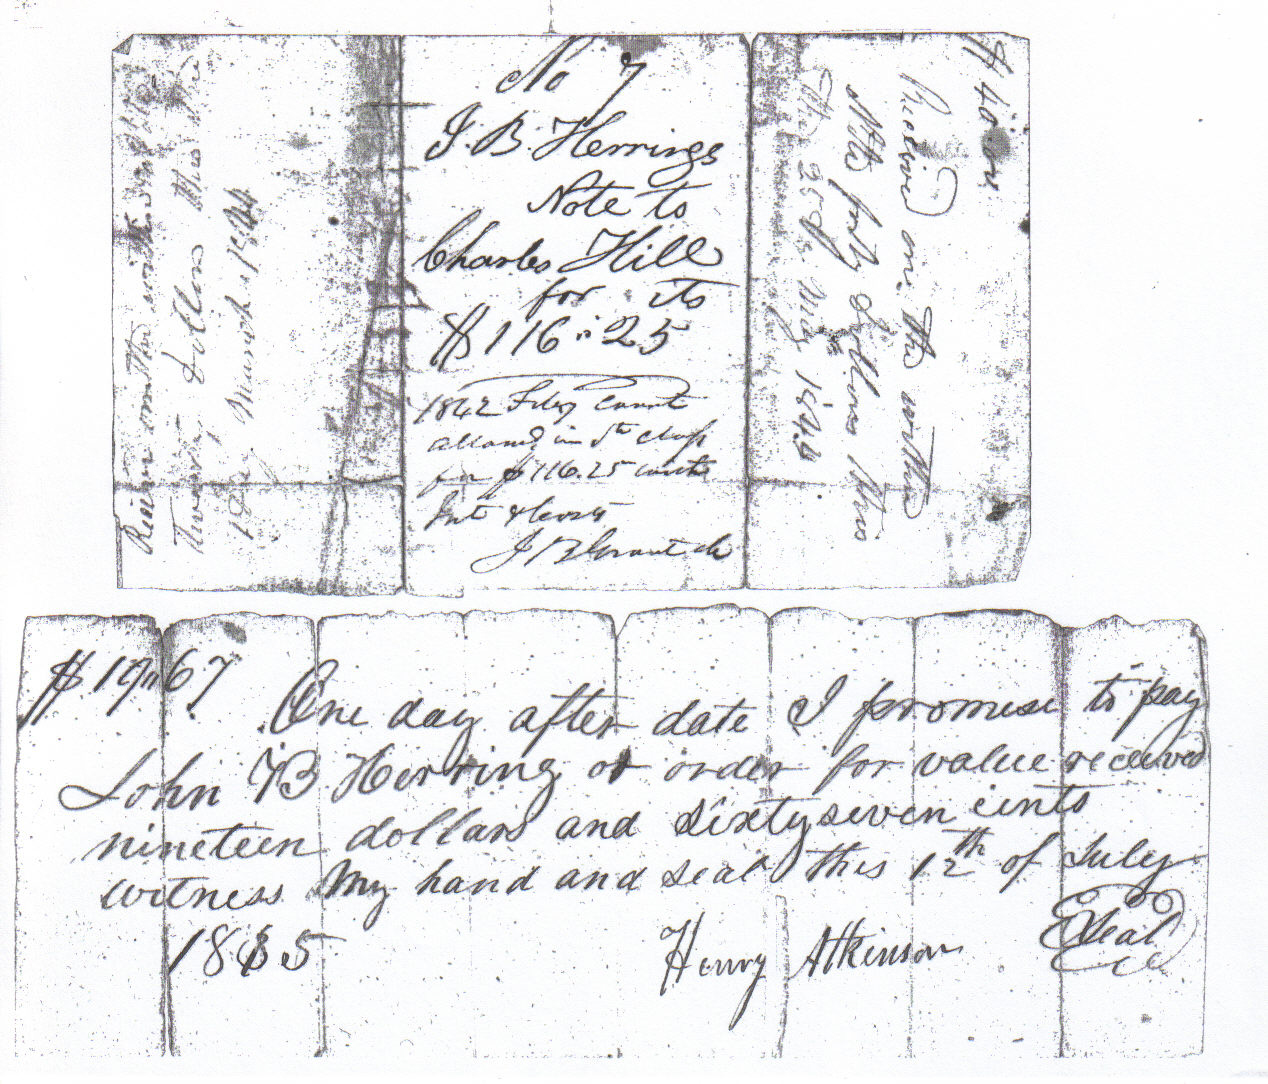 Received on the within
Twenty Dollars this the
1 Day March 1844
No 7
J. B. Herrings
Note to
Charles Hill
for its
$116 " 25
1842 Feby Court
allowed in 5th Class
for $116.25 with
Int & Costs
J B Grant clk
$40 "
Received on the within
Note forty dollars this
the 23d May 1846
$ 19 " 67
One day after date I promise to pay
John B Herring or order for value received
nineteen dollars and sixty seven cents
witness My hand and seal this 12th of July
1835
Henry Atkinson Seal